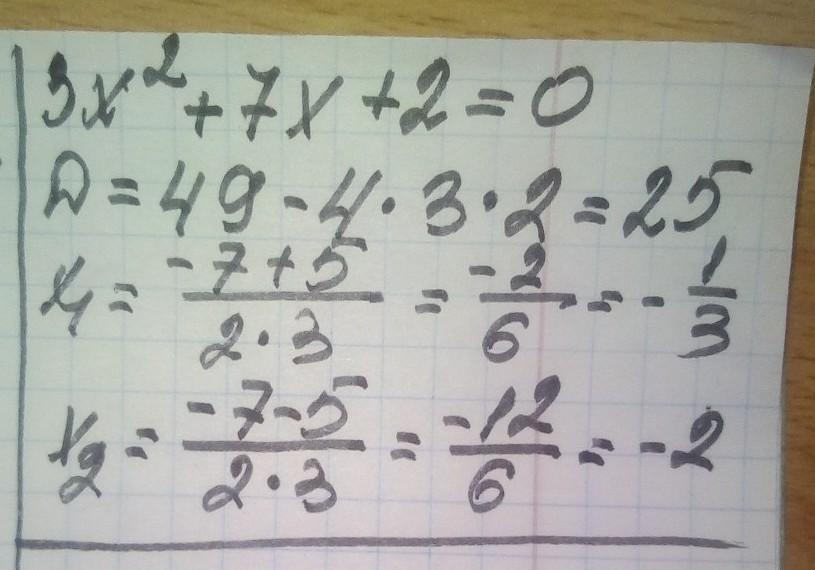 3x² + 7x + 2 = 0
D = 49 - 4 · 3 · 2 = 25
x₁ = (-7 + 5)/(2 · 3) = -2/6 = -1/3
x₂ = (-7 - 5)/(2 · 3) = -12/6 = -2